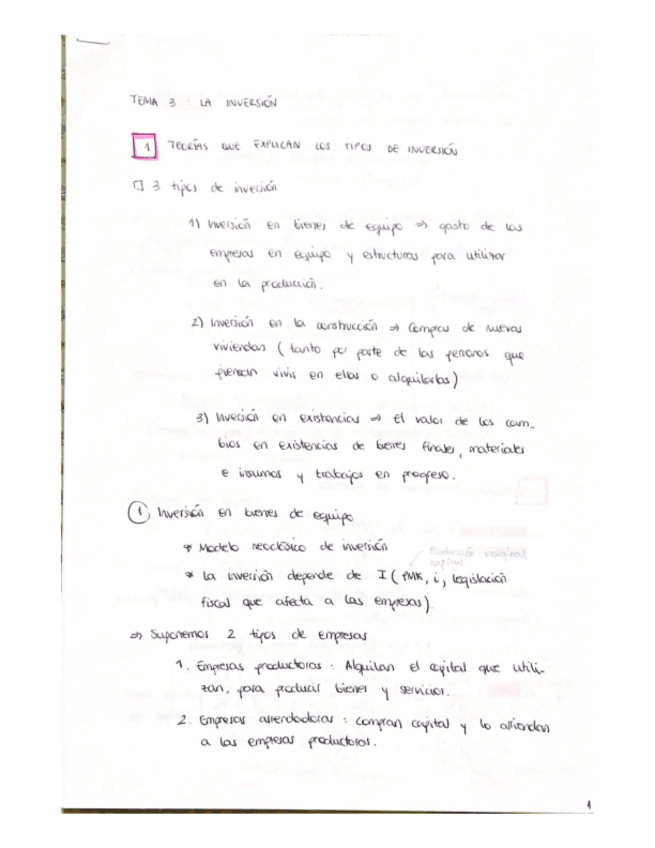 TEMA 3 : LA INVERSIÓN
1 TEORÍAS QUE EXPLICAN LOS TIPOS DE INVERSIÓN
3 tipos de inversión
1) Inversión en bienes de equipo ⇒ gasto de las
empresas en equipo y estructuras para utilizar
en la producción.
2) Inversión en la construcción ⇒ Compras de nuevas
viviendas ( tanto por parte de las personas que
piensan vivir en ellas o alquilarlas)
3) Inversión en existencias ⇒ El valor de los cam_
bios en existencias de bienes finales, materiales
e insumos y trabajos en progreso.
1 Inversión en bienes de equipo
* Modelo neoclásico de inversión
Producción marginal
capital
* La inversión depende de I ( PMK, i, legislación
fiscal que afecta a las empresas).
⇒ Suponemos 2 tipos de empresas
1. Empresas productoras : Alquilan el capital que utili-
zan, para producir bienes y servicios.
2. Empresas arrendadoras : compran capital y lo arriendan
a las empresas productoras.
1